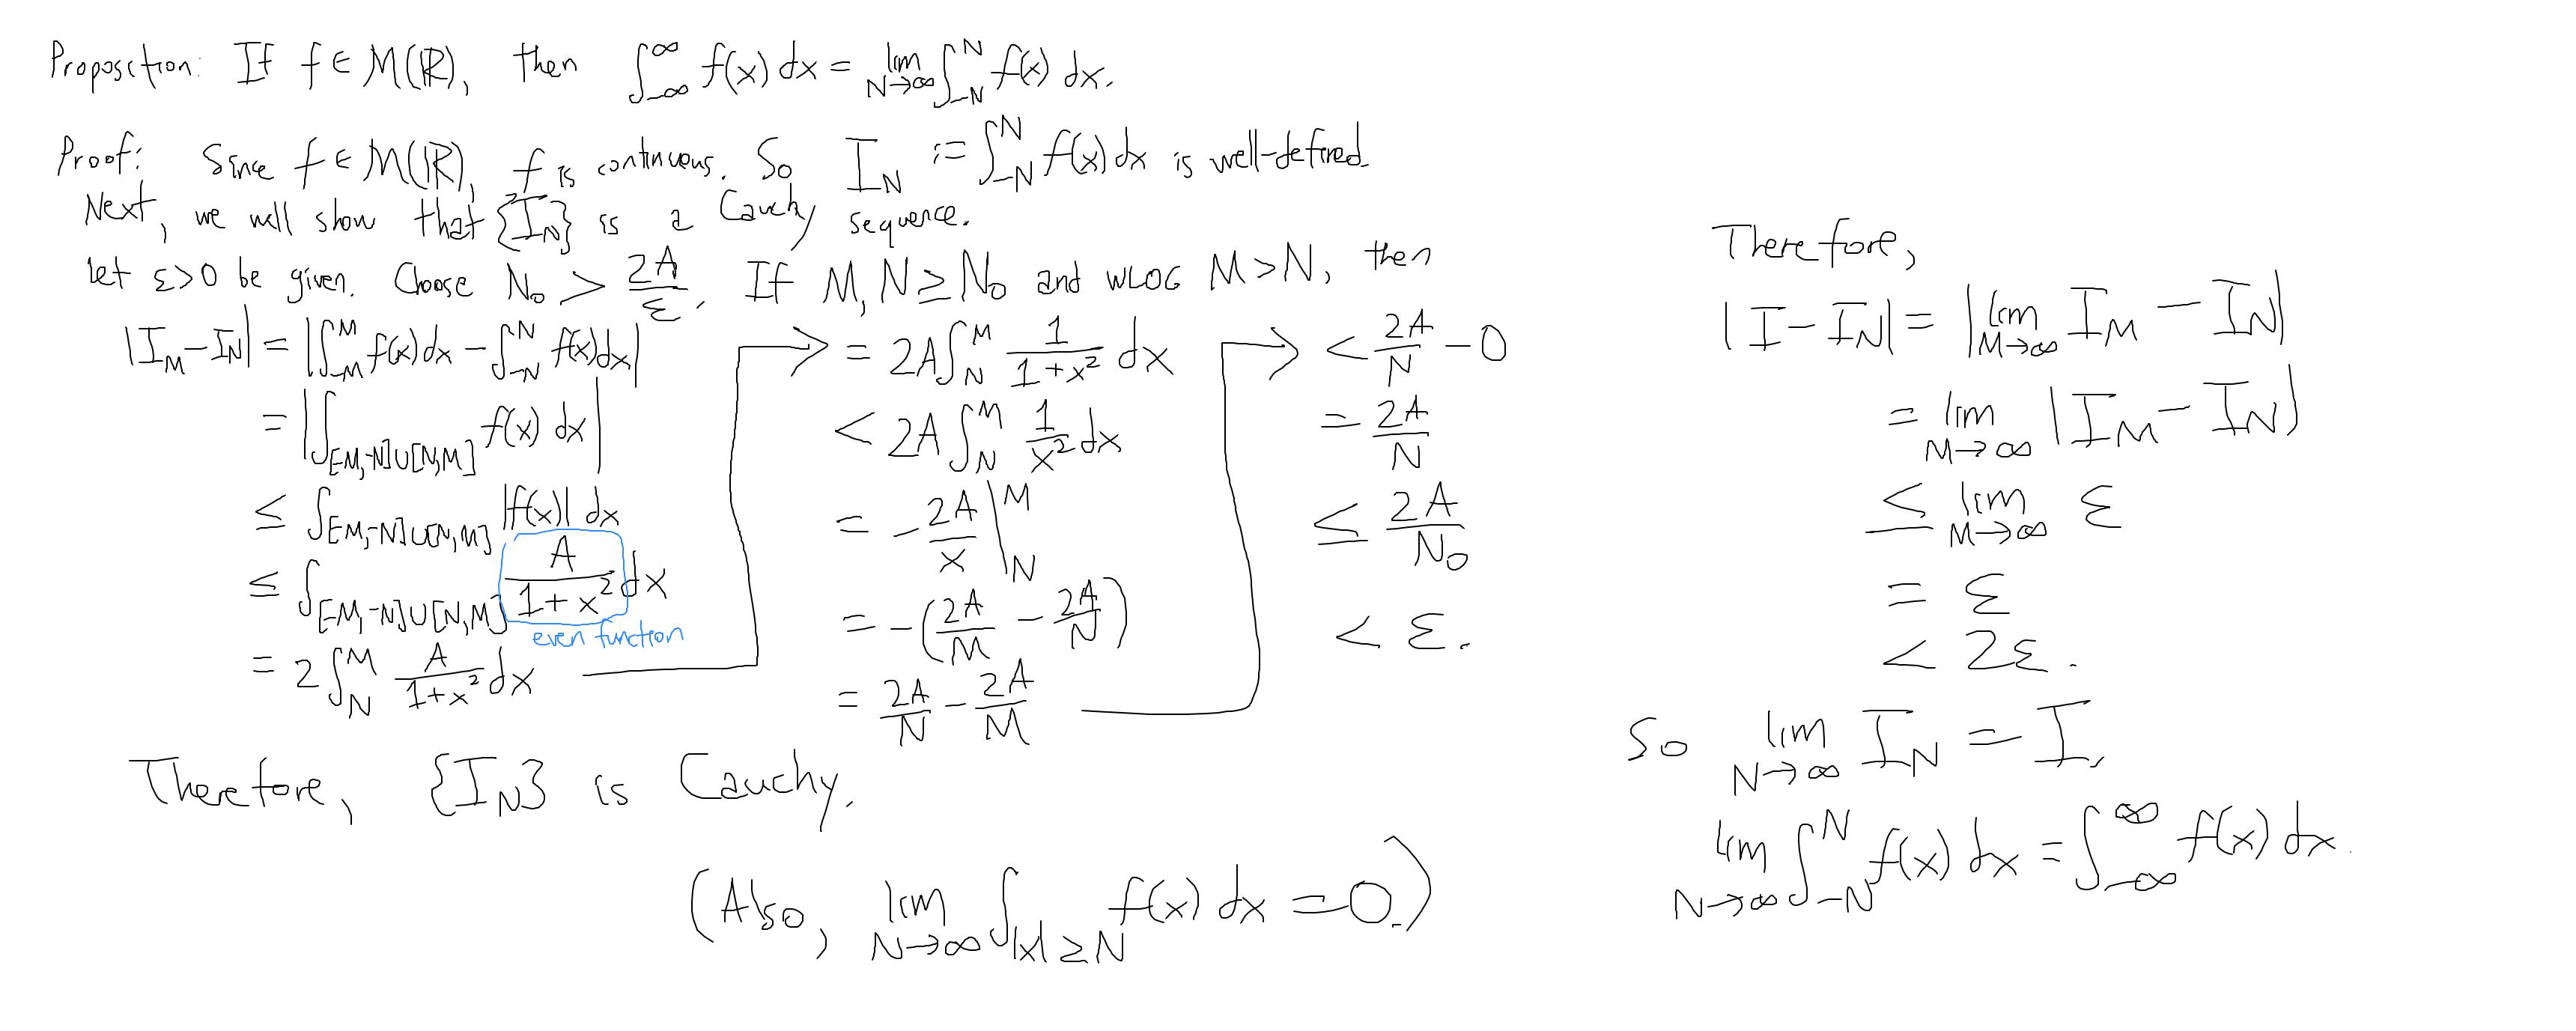 Proposition: If f ∈ M(ℝ), then ∫_{-∞}^{∞} f(x) dx = lim_{N→∞} ∫_{-N}^{N} f(x) dx.
Proof: Since f ∈ M(ℝ), f is continuous. So I_N := ∫_{-N}^{N} f(x) dx is well-defined.
Next, we will show that {I_N} is a Cauchy sequence.
Let ε>0 be given. Choose N_0 > 2A/ε. If M, N ≥ N_0 and WLOG M>N, then
|I_M - I_N| = |∫_{-M}^{M} f(x) dx - ∫_{-N}^{N} f(x) dx|
= |∫_{[-M,-N]∪[N,M]} f(x) dx|
≤ ∫_{[-M,-N]∪[N,M]} |f(x)| dx
≤ ∫_{[-M,-N]∪[N,M]} A/(1+x^2) dx
even function
= 2∫_N^M A/(1+x^2) dx
= 2A∫_N^M 1/(1+x^2) dx
< 2A∫_N^M 1/x^2 dx
= -2A/x |_N^M
= -(2A/M - 2A/N)
= 2A/N - 2A/M
< 2A/N - 0
= 2A/N
≤ 2A/N_0
< ε.
Therefore, {I_N} is Cauchy.
(Also, lim_{N→∞} ∫_{|x|≥N} f(x) dx = 0.)
Therefore,
|I - I_N| = |lim_{M→∞} I_M - I_N|
= lim_{M→∞} |I_M - I_N|
≤ lim_{M→∞} ε
= ε
< 2ε.
So lim_{N→∞} I_N = I,
lim_{N→∞} ∫_{-N}^{N} f(x) dx = ∫_{-∞}^{∞} f(x) dx.